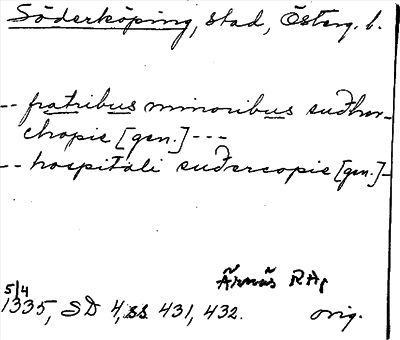 Söderköping, stad, Österg. l.
-- fratribus minoribus suđhur-
chopie [gen.] ---
-- hospitali suđercopie [gen.]-
Årnäs RAp
5/4
1335, SD 4, ss 431, 432. orig.